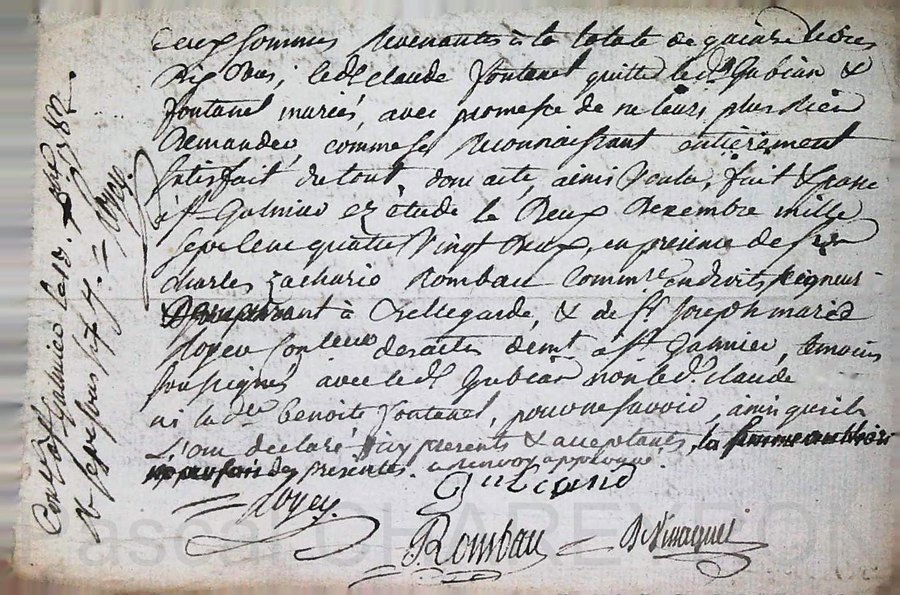 deux sommes revenantes à la totale de quinze livres
dix sous, led. claude fontanel quitte led. Gubian &
fontanel mariés, avec promesse de ne leurs plus rien
demander, comme se reconnaissant entièrement
satisfait du tout, dont acte, ainsi voulu, fait & passé
à St Galmier ez étude le deux décembre mille
sept cent quatre vingt deux, en présence de
charles zacharie Rombau Commre en droits seigneur
à Bellegarde, & de Sr Joseph marie
Royer des actes demt à St Galmier, temoins
soussignés avec led. Gubian non led. claude
ni lad. benoite fontanel, pour ne savoir, ainsi qu'ils
L'ont déclaré & acceptants, la
des presentes. renvoy approuvé
Royer
Rombau
Conlé à St Galmier le 13
Rc sept sous
Pascal CHARETRON